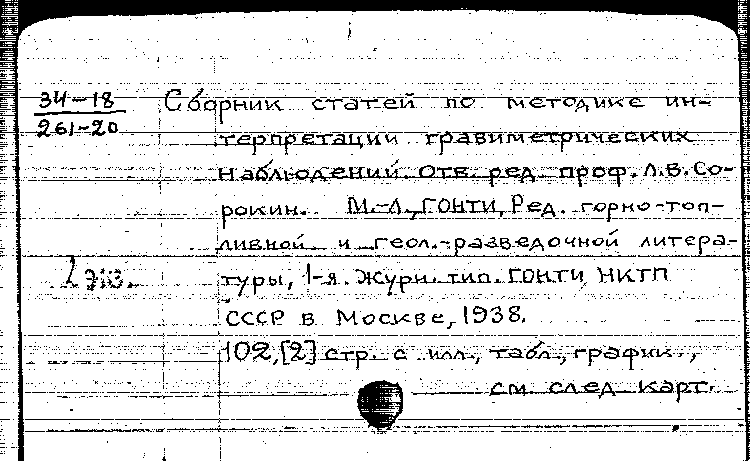 34-18 Сборник статей по методике ин-
261-20 терпретации гравиметрических
наблюдений. Отв. ред. проф. Л.В. Со-
рокин. М.-Л., ГОНТИ, Ред. горно-топ-
ливной и геол.-разведочной литера-
2 экз. туры, 1-я. Журн. тип. ГОНТИ НКТП
СССР в Москве, 1938.
102,[2] стр. с илл., табл., график.,
см. след. карт.